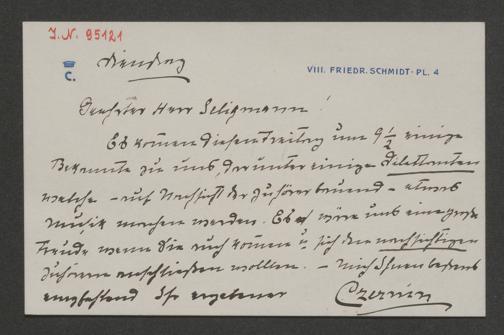 I.N. 95121
C.
Dienstag
VIII. FRIEDR. SCHMIDT-PL. 4
Geehrter Herr Seligmann!
Es kommen diesen Freitag um 9 1/2 einige
Bekannte zu uns, darunter einige Dilettanten
welche – auf Nachsicht der Zuhörer bauend – etwas
Musik machen werden. Es wäre uns eine große
Freude wenn Sie auch kommen u. sich den nachsichtigen
Zuhörern anschließen wollen. – Mich Ihnen bestens
empfehlend Ihr ergebener Czernin